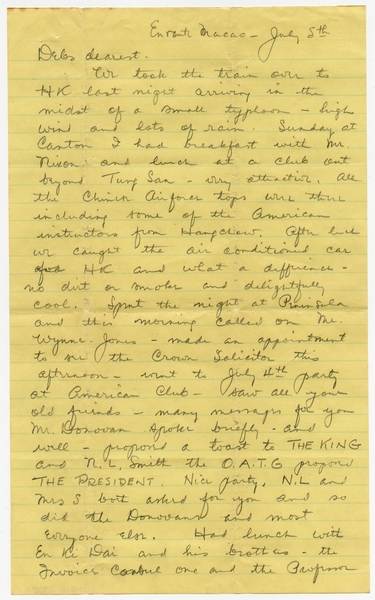 Enroute Macao - July 5th
Debs dearest.
We took the train over to
HK last night arriving in the
midst of a small typhoon - high
wind and lots of rain. Sunday at
Canton I had breakfast with Mr
Nixon and lunch at a club out
beyond Tung San - very attractive. All
the Chinese Airforce tops were there
including some of the American
instructors from Hangchow. After lunch
we caught the air conditioned car
HK and what a difference -
no dirt or smoke and delightfully
cool. Spent the night at Peninsula
and this morning called on Mr.
Wynne-Jones - made an appointment
to see the Crown Solicitor this
afternoon - went to July 4th party
at American Club - saw all your
old friends - many messages for you
Mr. Donovan spoke briefly - and
well - proposed a toast to THE KING
and N.L. Smith the O.A.T.G proposed
THE PRESIDENT. Nice party, N.L and
Mrs S both asked for you and so
did the Donovans and most
everyone else. Had lunch with
En Ke Dai and his brothers - the
Invoice Consul one and the Professor